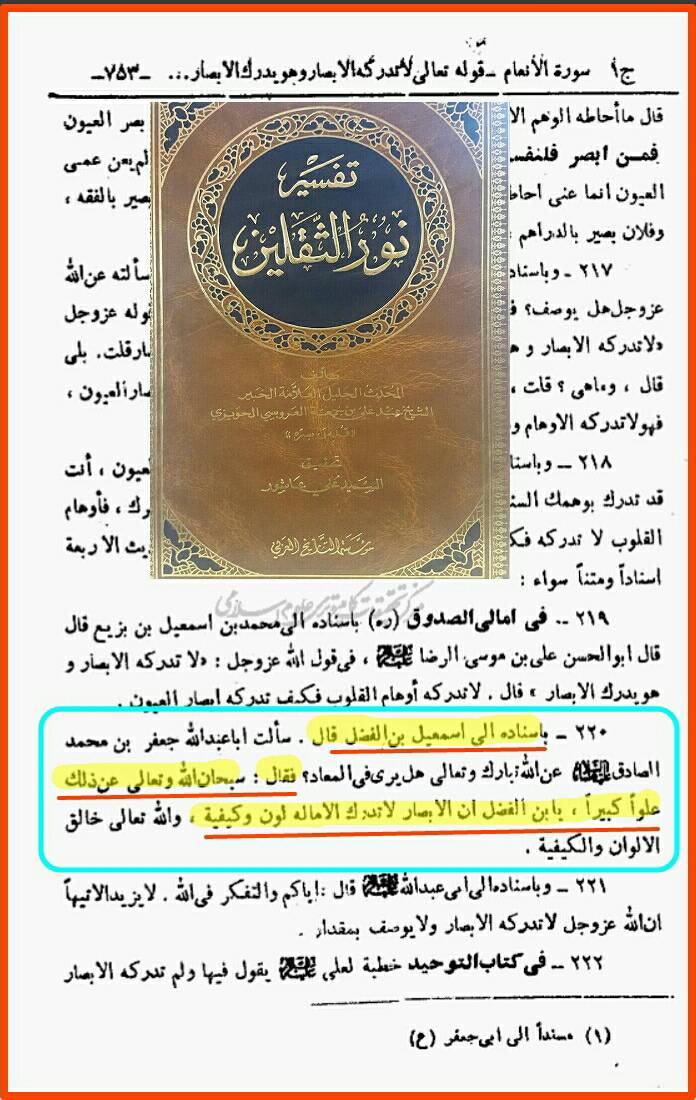 ج۱ سورة الأنعام ـ قوله تعالى لا تدركه الابصار وهو يدرك الابصار... ـ۷۵۳ـ
قال ما أحاطه الوهم الا بصر العيون
فمن ابصر فلنفسه لم يعن عمى
العيون انما عنى احاط بصير بالفقه ،
وفلان بصير بالدراهم
۲۱۷ ـ وباسناد سألته عن الله
عزوجل هل يوصف؟ ف قوله عزوجل
«لا تدركه الابصار و هـ قلت. بلى
قال ، وماهى ؟ قلت ، ابصار العيون ،
فهو لا تدركه الاوهام و
۲۱۸ ــ وباسنا العيون ، أنت
قد تدرك بوهمك السند درك ، فأوهام
القلوب لا تدركه فكـ يث الاربعة
اسناداً ومتناً سواء :
تفسير
نور الثقلين
تأليف
المحدث الجليل العلامة الخبير
الشيخ عبد علي بن جمعة العروسي الحويزي
«قدس سره»
تحقيق
السيد علي عاشور
مؤسسة التاريخ العربي
۲۱۹ ــ فى امالى الصدوق (ره) باسناده الى محمد بن اسمعيل بن بزيع قال
قال ابو الحسن على بن موسى الرضا عليه السلام ، فى قول الله عزوجل : «لا تدركه الابصار و
هو يدرك الابصار » قال . لا تدركه أوهام القلوب فكيف تدركه ابصار العيون .
۲۲۰ ــ باسناده الى اسمعيل بن الفضل قال . سألت ابا عبدالله جعفر بن محمد
الصادق عليه السلام عن الله تبارك وتعالى هل يرى فى المعاد؟ فقال : سبحان الله وتعالى عن ذلك
علواً كبيراً ، يابن الفضل ان الابصار لا تدرك الا ماله لون وكيفية ، والله تعالى خالق
الالوان والكيفية .
۲۲۱ ــ وباسناده الى ابى عبدالله عليه السلام قال : اياكم والتفكر فى الله . لا يزيد الا تيهاً
ان الله عزوجل لا تدركه الابصار ولا يوصف بمقدار .
۲۲۲ ــ فى كتاب التوحيد خطبة لعلى عليه السلام يقول فيها ولم تدركه الابصار
(۱) مسنداً الى ابى جعفر (ع)